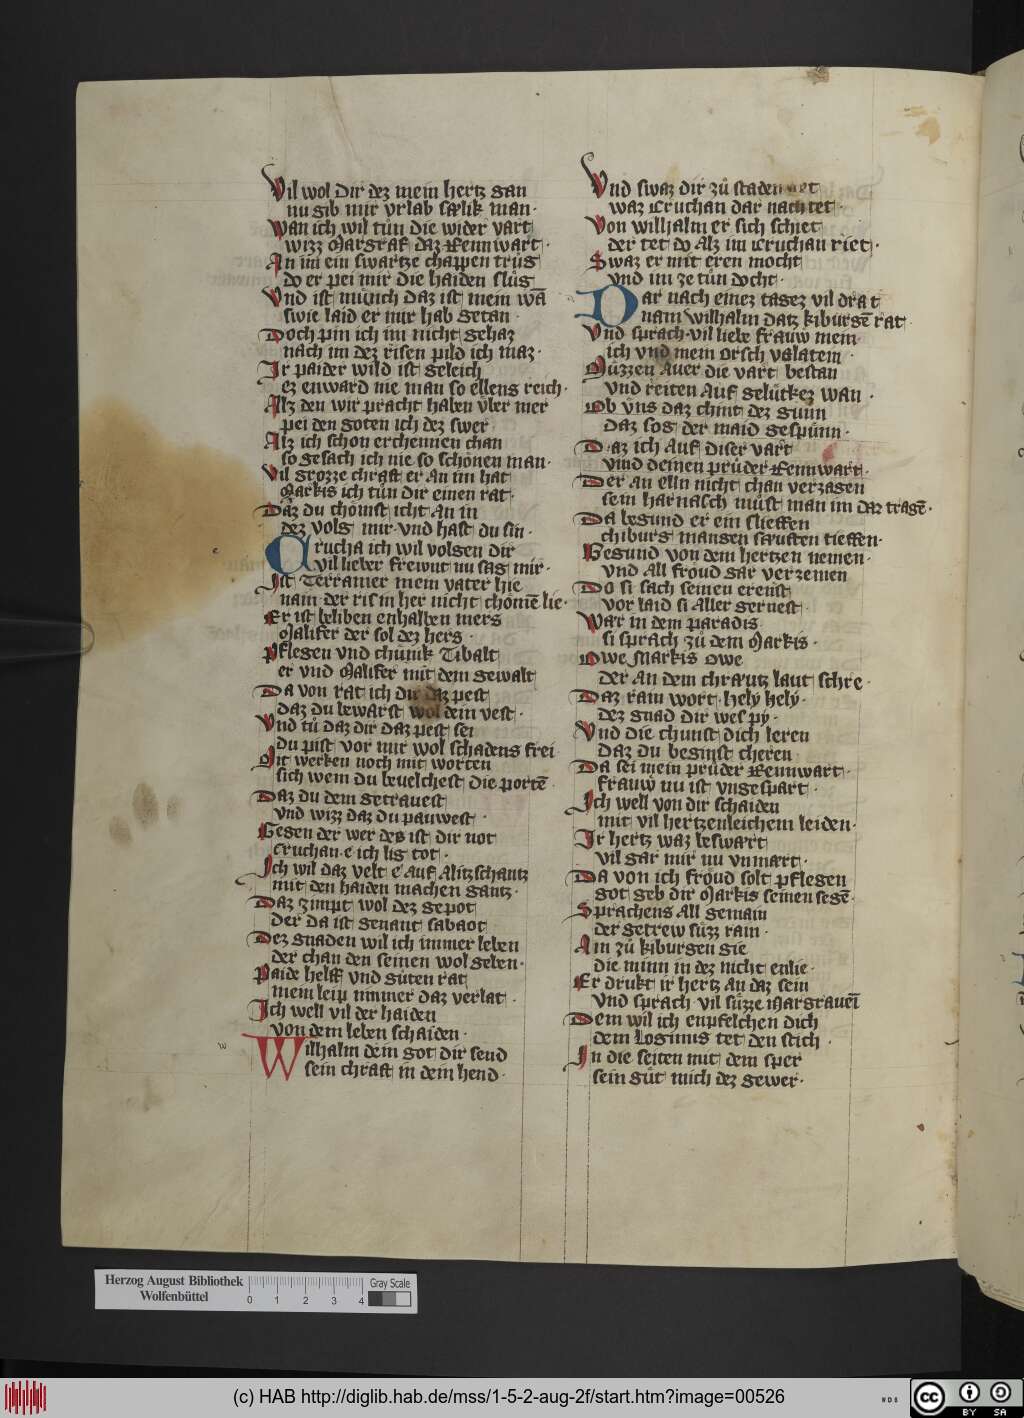 Vil wol dir dez mein hertz gan
nu gib mir vrlab sælik man·
Wan ich wil tůn die wider vart
wizz Margraf daz Rennwart·
An im ein swartze chappen trůg
do er pei mir die haiden slůg
Vnd ist můnich daz ist mein wā
swie laid er mir hab getan·
Doch pin ich im nicht gehaz
nach im dez risen pild ich maz·
Ir paider wild ist geleich
ez enward nie man so ellens reich·
Alz den wir pracht haben vber mer
pei den goten ich dez swer
Alz ich schon erchennen chan
so gesach ich nie so schönen man·
Vil grozze chraft er An im hat
Markis ich tůn dir einen rat·
Daz du chömst icht An in
dez volg mir vnd hast du sin·
Crucha ich wil volgen dir
vil lieber frewnt nu sag mir·
Ist Terramer mein vater hie
nain der ris in her nicht chömē lie·
Er ist beliben enhalben mers
Malifer der sol dez hers·
Pflegen vnd chünik Tibalt
er vnd Malifer mit dem gewalt
Da von rat ich dir daz pest
daz du bewarst wol dein vest·
Vnd tů daz dir daz pest sei
du pist vor mir wol schadens frei
Mit werken noch mit worten
sich wem du beuelchest die portē
Daz du dem getrauest
vnd wizz daz du pauwest·
Gegen der wer des ist dir not
Cruchan·e ich lig tot·
Ich wil daz velt e Auf Alitzschantz
mit den haiden machen gantz·
Daz zimpt wol dez gepot
der da ist genant sabaot
Dez gnaden wil ich immer leben
der chan den seinen wol geben·
Paide helff vnd gůten rat
mein leip nimmer daz verlat·
Ich well vil der haiden
von dem leben schaiden·
w
Wilhalm dein got dir send
sein chraft in dein hend·
Vnd swaz dir zů staden
waz Cruchan dar nach tet·
Von willhalm er sich schiet
der tet do Alz im Cruchan riet·
Swaz er mit eren mocht
vnd im ze tůn docht·
Dar nach einez tagez vil drat
nam wilhalm datz kiburgē rat
Vnd sprach·vil liebe frauw mein
ich vnd mein orsch volatein
Můzzen Auer die vart bestan
vnd reiten Auf gelückez wan·
Ob vns daz chint dez gunn
daz sog der maid gespünn·
Daz ich Auf diser vart
vind deinen průder Rennwart·
Der An elln nicht chan verzagen
sein harnasch můst man im dar tragē·
Da begund er ein slieffen
chiburg mangen sæuften tieffen·
Begund von dem hertzen nemen·
vnd All froud gar verzemen
Do si sach seinen ernst
vor laid si Aller gernest·
War in dem paradis
si sprach zů dem Markis·
Owe Markis owe
der An dem chræutz laut schre·
Daz rain wort hely hely·
dez gnad dir wes py·
Vnd die chunst dich leren
daz du beginst cheren
Da sei mein prüder Rennwart·
frauw nu ist vngespart·
Ich well von dir schaiden
mit vil hertzenleichem leiden·
Ir hertz waz beswært
vil gar mir nu vnmært·
Da von ich froud solt pflegen
got geb dir Markis seinen segē·
Sprachens All gemain
der getrew süzz rain·
Ain zů kiburgen gie
die minn in dez nicht enlie·
Er drukt ir hertz An daz sein
vnd sprach vil süzze Margraueī
Dem wil ich enpfelchen dich
dem Loginus tet den stich·
In die seiten mit dem sper
sein güt mich dez gewer·
Herzog August Bibliothek
Wolfenbüttel
0 1 2 3 4
Gray Scale
(c) HAB http://diglib.hab.de/mss/1-5-2-aug-2f/start.htm?image=00526
WDB
CC BY SA